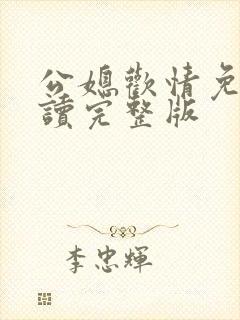 公媳歡情免
讀完整版
李忠輝